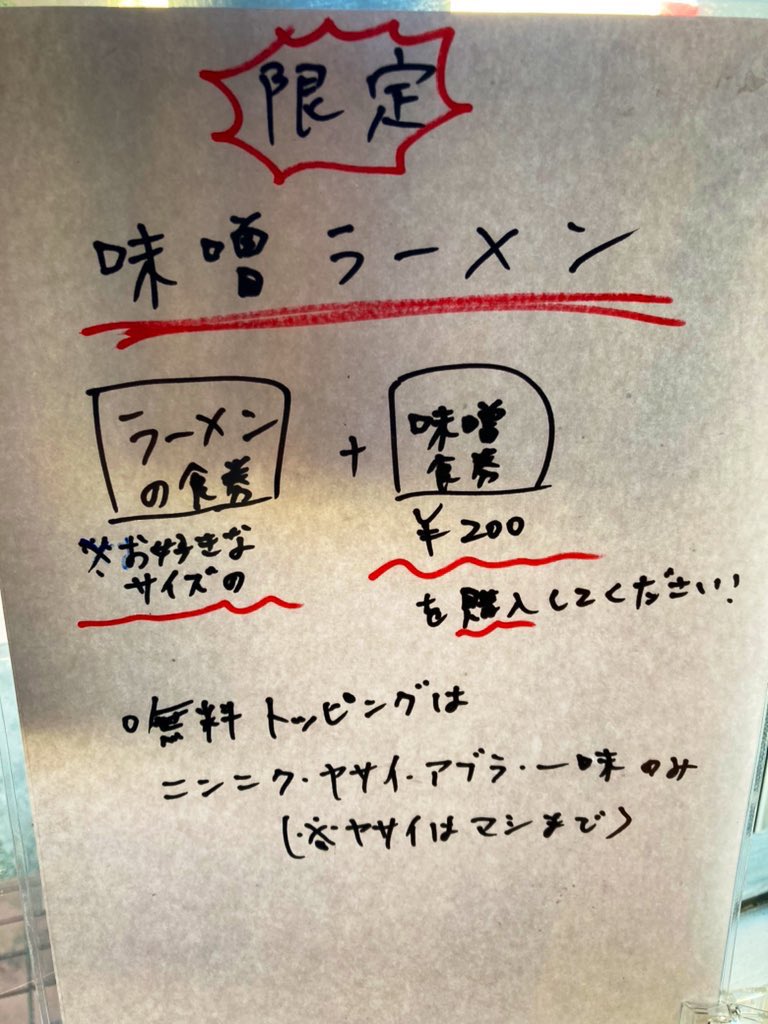 限定
味噌ラーメン
ラーメン
の食券
※お好きな
サイズの
+
味噌
食券
¥200
を購入してください!
○無料トッピングは
ニンニク・ヤサイ・アブラ・一味のみ
(※ヤサイはマシまで)